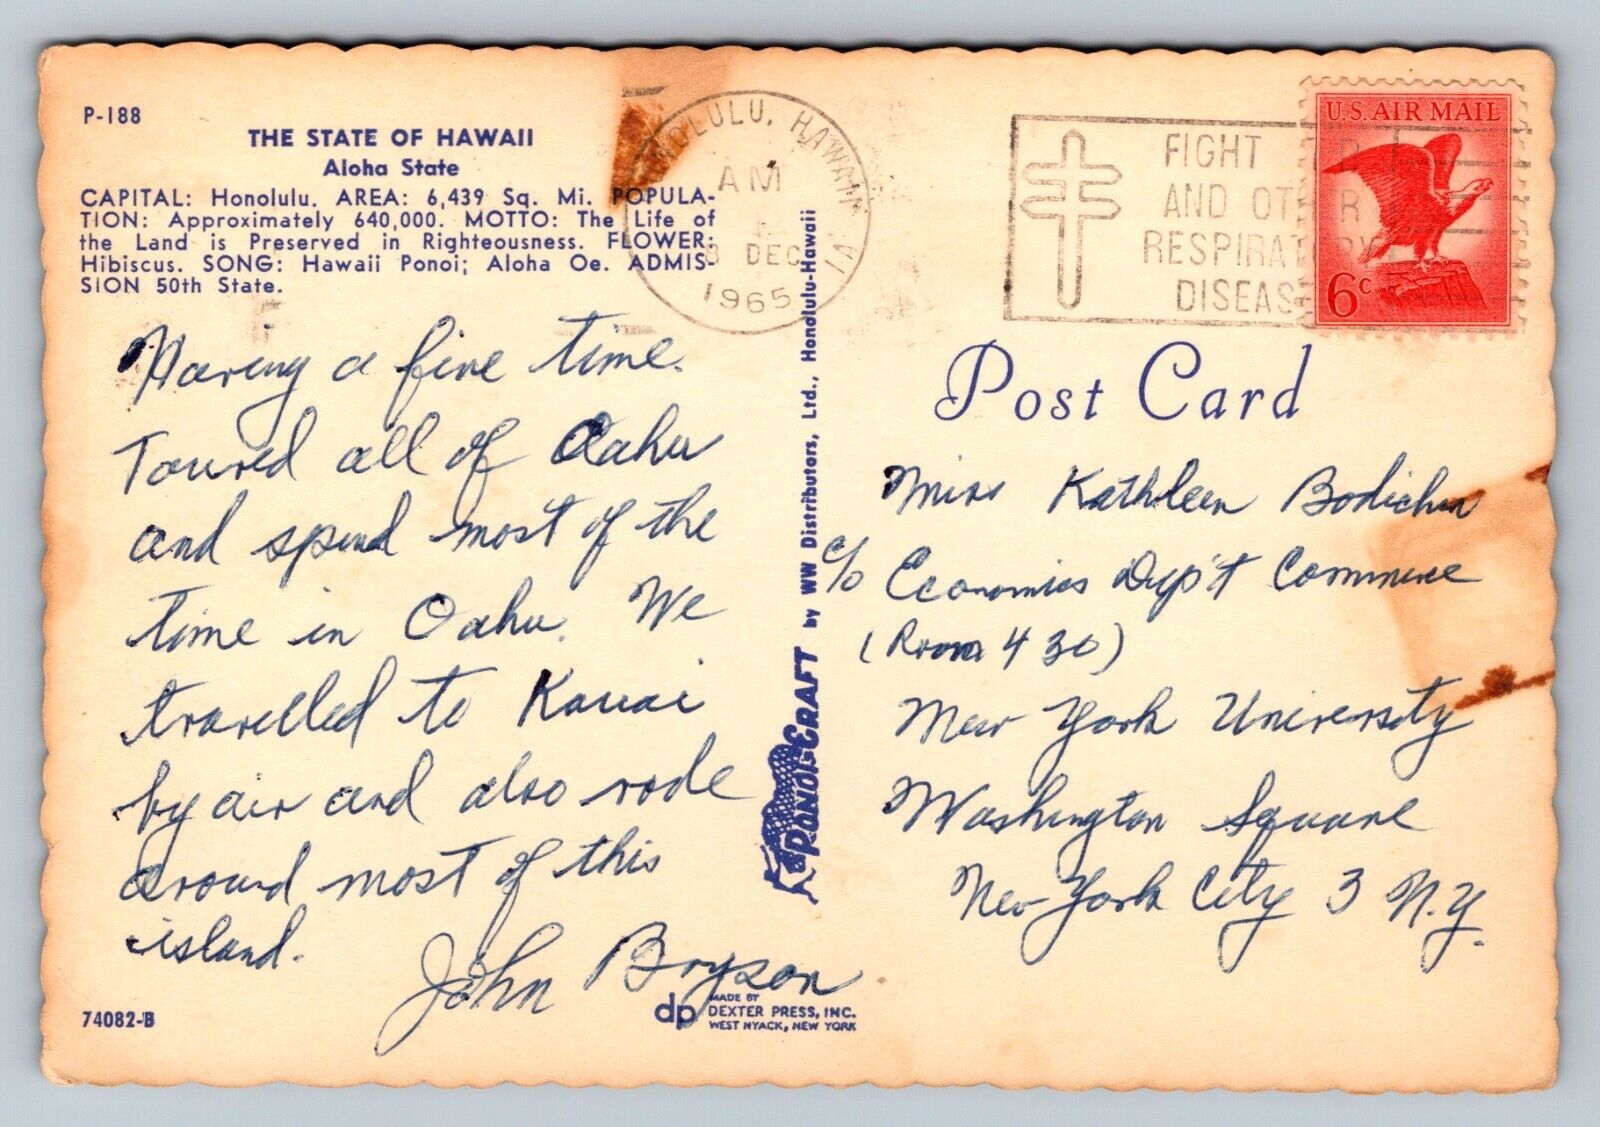 P-188
THE STATE OF HAWAII
Aloha State
CAPITAL: Honolulu. AREA: 6,439 Sq. Mi. POPULA-
TION: Approximately 640,000. MOTTO: The Life of
the Land is Preserved in Righteousness. FLOWER:
Hibiscus. SONG: Hawaii Ponoi; Aloha Oe. ADMIS-
SION 50th State.
Having a fine time.
Toured all of Oahu
and spend most of the
time in Oahu. We
travelled to Kauai
by air and also rode
around most of this
island.
John Bryson
74082-B
dp MADE BY
DEXTER PRESS, INC.
WEST NYACK, NEW YORK
PONO CRAFT by WW Distributors, Ltd., Honolulu-Hawaii
HONOLULU, HAWAII
AM
8 DEC
1965
1A
FIGHT
AND OTHER
RESPIRATORY
DISEASE
U.S. AIR MAIL
6c
Post Card
Miss Kathleen
c/o Economics Dep't Commerce
(Room 430)
New York University
Washington Square
New York City 3 N.Y.